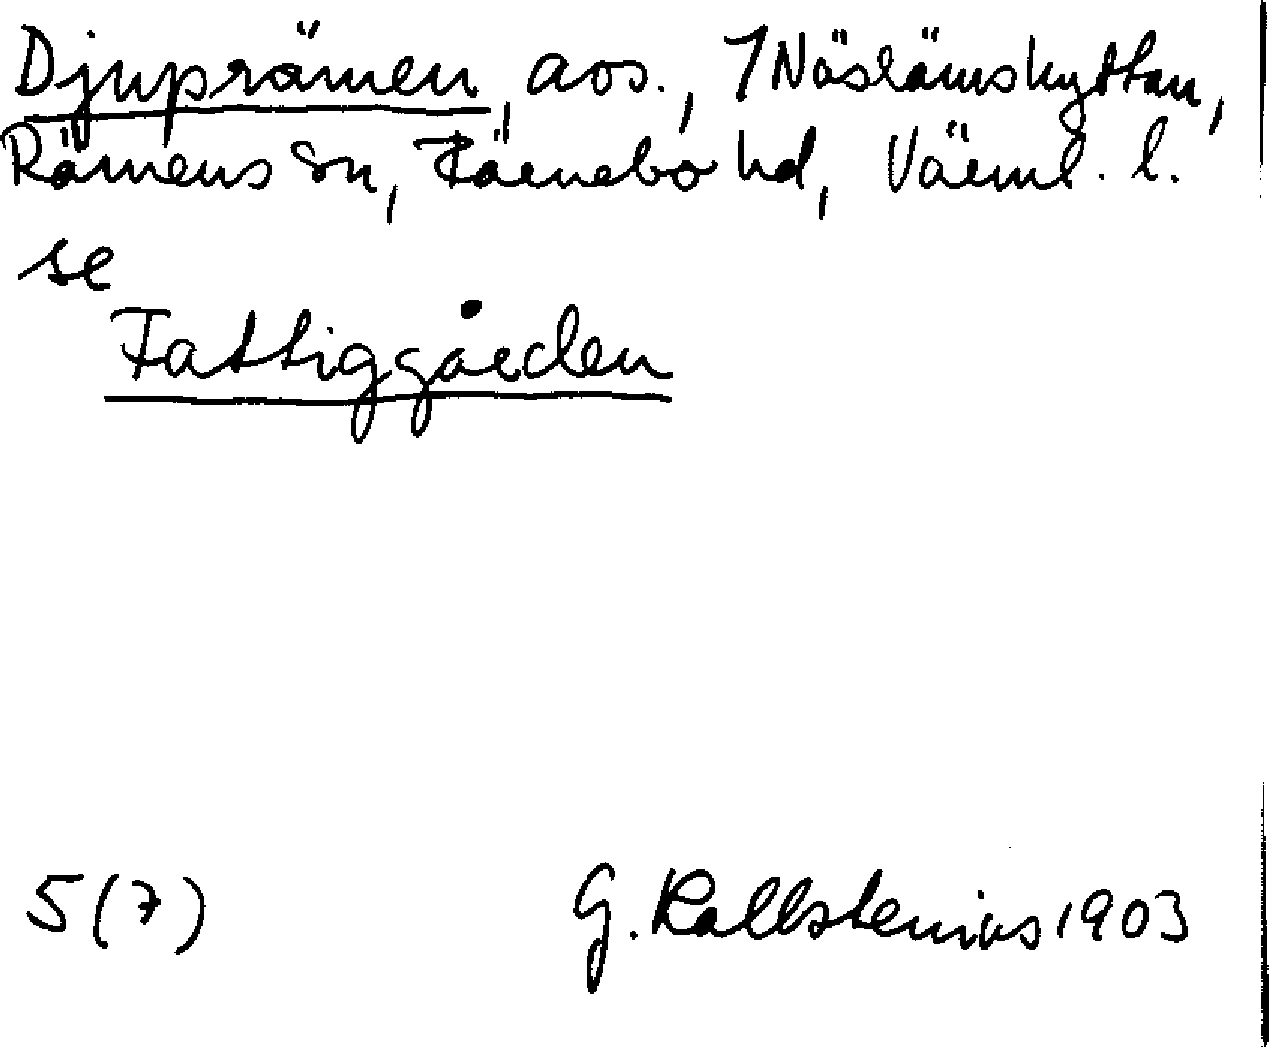 Djuprämen, aos., 1 Näsrämshyttan,
Rämens sn, Färnebo hd, Värml. l.
se
Fattiggården
5 (7) G. Kallstenius 1903